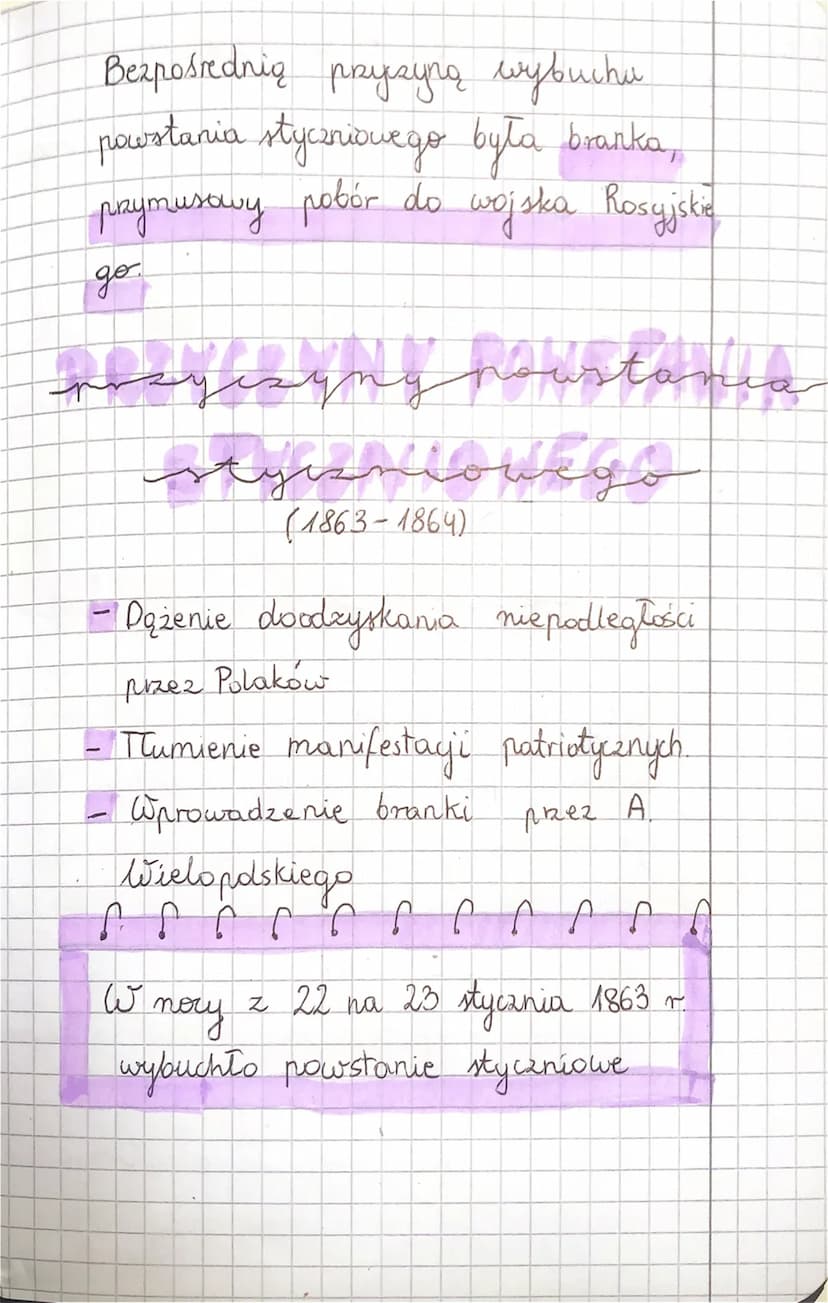 Bezpośrednią przyczyną wybuchu
powstania styczniowego była branka,
przymusowy pobór do wojska Rosyjskie
go.
PRZYCZYNY POWSTANIA
przyczyny powstania
STYCZNIOWEGO
styczniowego
(1863-1864)
- Dążenie doodzyskania niepodległości
przez Polaków
- Tłumienie manifestacji patriotycznych.
- Wprowadzenie branki przez A.
Wielopolskiego
W nocy z 22 na 23 stycznia 1863 r.
wybuchło powstanie styczniowe